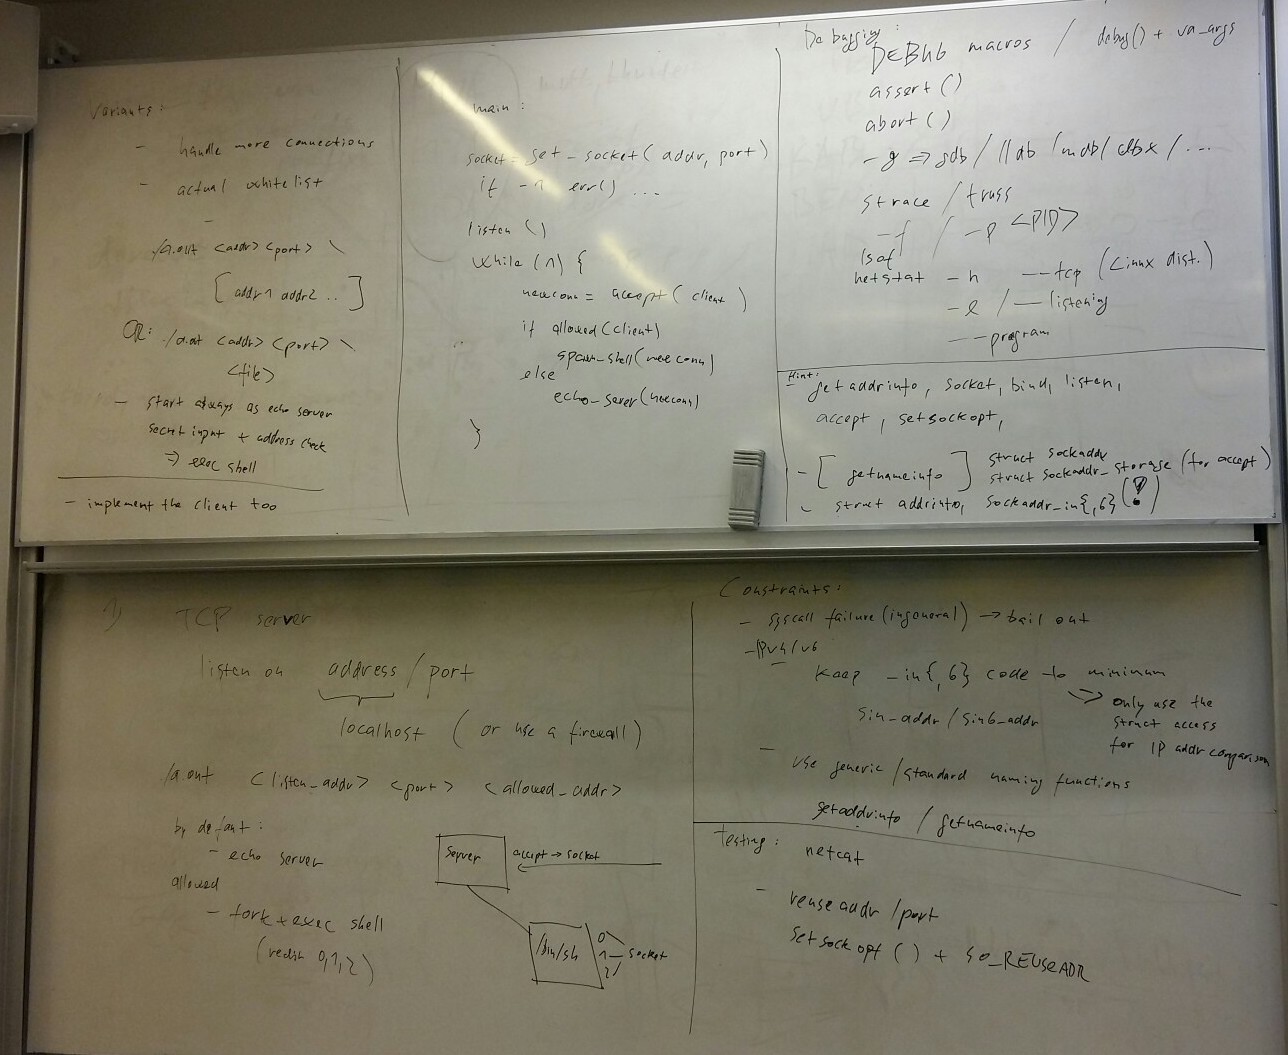 Variants:
- handle more connections
- actual whitelist
-
./a.out <addr> <port> \
[addr1 addr2 ..]
OR: ./a.out <addr> <port> \
<file>
- start always as echo server
secret input + address check
=> exec shell
- implement the client too
main:
socket = get_socket(addr, port)
if -1 err() ...
listen()
while (1) {
newconn = accept(client)
if allowed(client)
spawn_shell(newconn)
else
echo_sever(newconn)
}
Debugging:
DEBUG macros / debug() + va_args
assert()
abort()
-g => gdb / lldb / mdb / dbx / ...
strace / truss
-f / -p <PID>
lsof
netstat -n --tcp (Linux dist.)
-l / --listening
--program
Hint:
- getaddrinfo, socket, bind, listen,
accept, setsockopt,
- [getnameinfo] struct sockaddr
struct sockaddr_storage (for accept)
- struct addrinfo, sockaddr_in{,6} (!)
1) TCP server
listen on address / port
localhost (or use a firewall)
./a.out <listen_addr> <port> <allowed_addr>
by defaut:
- echo server
allowed
- fork + exec shell
(redir 0,1,2)
server
accept -> socket
/bin/sh
0
1 - socket
2
Constraints:
- syscall failure (in general) -> bail out
- IPv4/v6
keep _in{,6} code to minimum
=> only use the
struct access
for IP addr comparison
sin_addr / sin6_addr
- use generic / standard naming functions
getaddrinfo / getnameinfo
Testing: netcat
- reuse addr / port
setsockopt() + SO_REUSEADR